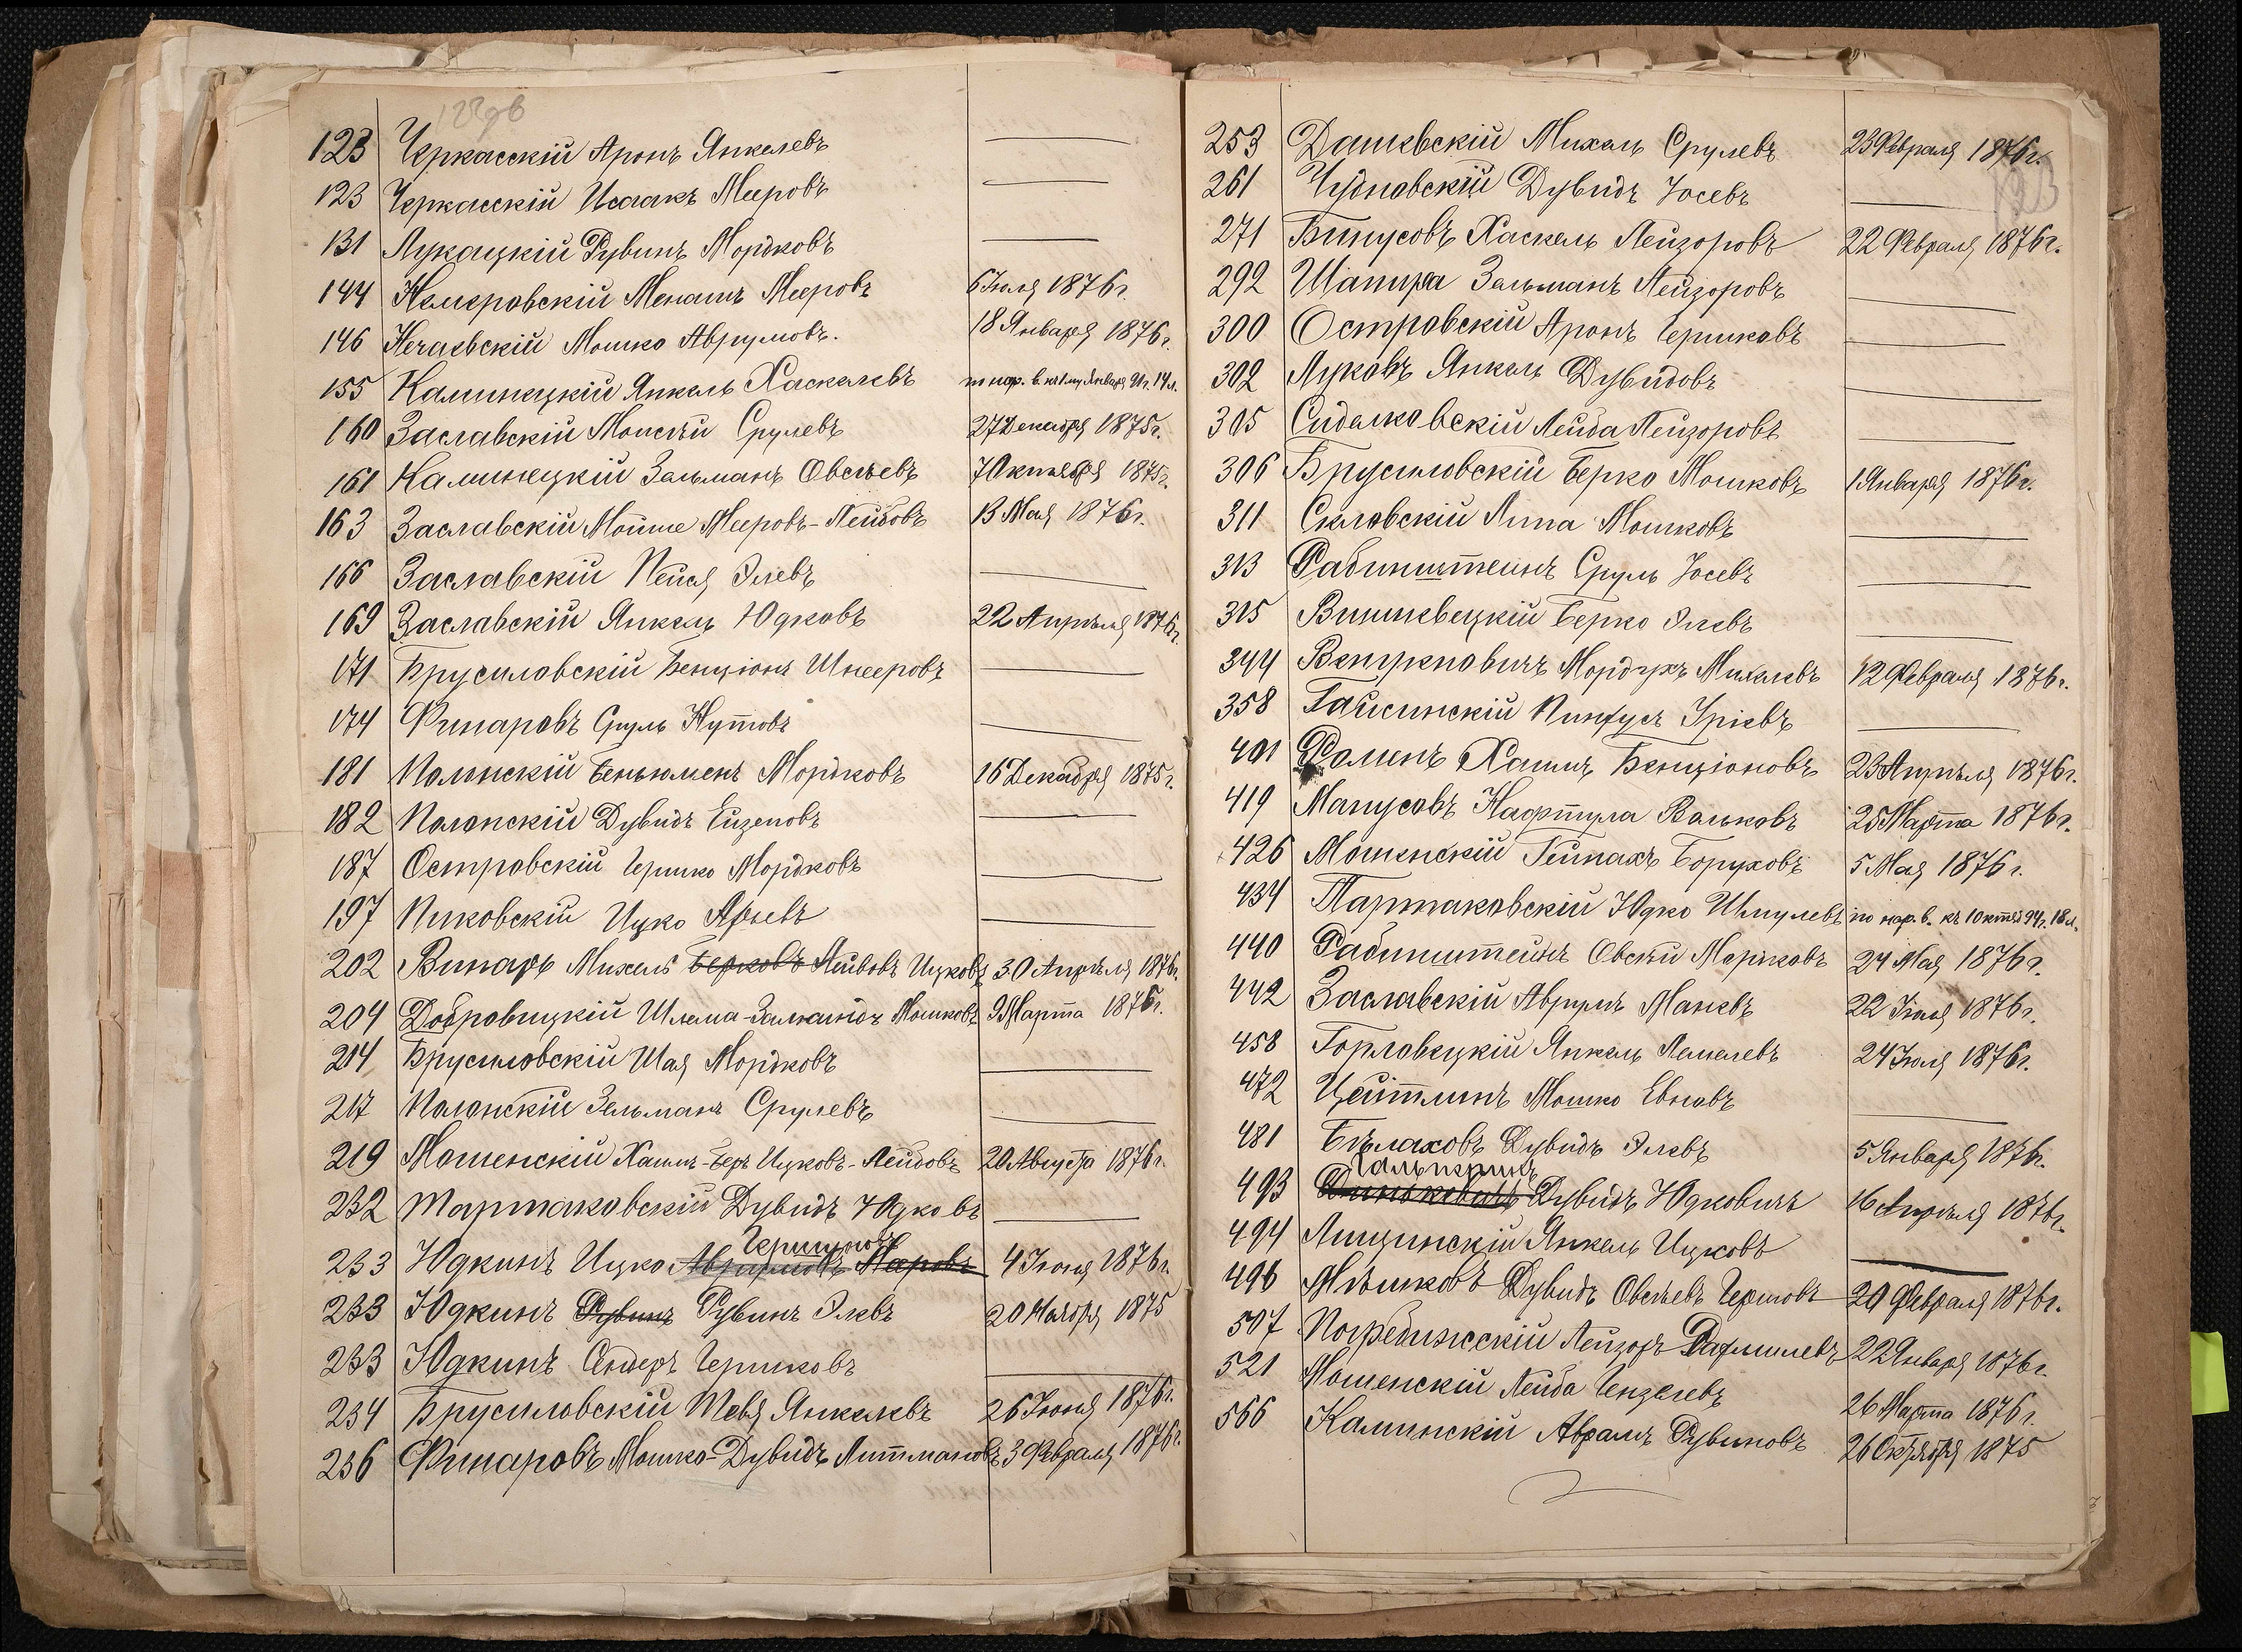 123 Черкасскій Аронъ Янкелевъ
123 Черкасскій Исаакъ Мееровъ
131 Лукацкій Рувинъ Мордковъ
144 Немеровскій Менашъ Мееровъ 6 Іюля 1876 г.
146 Нечаевскій Мошко Аврумовъ. 18 Января 1876 г.
155 Калинецкій Янкель Хаскелевъ по нар. в. къ 1му Января 91 г. 14 л.
160 Заславскій Моисѣй Срулевъ 27 Декабря 1875 г.
161 Калинецкій Зельманъ Овсѣевъ 7 Октября 1875 г.
163 Заславскій Мойше Мееровъ-Лейбовъ 13 Мая 1876 г.
166 Заславскій Пейся Элевъ
169 Заславскій Янкель Юдковъ 22 Апрѣля 1876 г.
171 Брусиловскій Бенціонъ Шнееровъ
174 Финаровъ Сруль Нутовъ
181 Полонскій Беньюменъ Мордковъ 16 Декабря 1875 г.
182 Полонскій Дувидъ Ейзеповъ
187 Островскій Гершко Мордковъ
197 Пиковскій Ицко Арьевъ
202 Винаръ Михель Берковъ Лейбовъ Ицковъ 30 Апрѣля 1876 г.
204 Добровицкій Шлема-Залманидъ Мошковъ 9 Марта 1876 г.
214 Брусиловскій Шая Мордковъ
217 Полонскій Зельманъ Срулевъ
219 Мошенскій Хаимъ-Беръ Ицковъ-Лейбовъ 20 Августа 1876 г.
232 Тартаковскій Дувидъ Юдковъ
Гершковъ
233 Юдкинъ Ицко 4 Іюня 1876 г.
233 Юдкинъ Рувинъ Рувинъ Элевъ 20 Ноября 1875
233 Юдкинъ Сендеръ Гершковъ
234 Брусиловскій Тевя Янкелевъ 26 Іюня 1876 г.
236 Финаровъ Мошко-Дувидъ Литмановъ 3 Февраля 1876 г.
253 Дашевскій Михель Срулевъ 23 Февраля 1876 г.
261 Чудновскій Дувидъ Іосевъ
271 Бинусовъ Хаскель Лейзоровъ 22 Февраля 1876 г.
292 Шапира Зельманъ Лейзоровъ
300 Островскій Аронъ Гершковъ
302 Луковъ Янкель Дувидовъ
305 Сидалковскій Лейба Лейзоровъ
306 Брусиловскій Берко Мошковъ 1 Января 1876 г.
311 Склавскій Липа Мошковъ
313 Рабинштейнъ Сруль Іосевъ
315 Вишневецкій Берко Элевъ
344 Мордухъ Михелевъ 12 Февраля 1876 г.
358 Гайсинскій Пинхусъ Уріевъ
401 Роменъ Хаимъ Бенціоновъ 23 Апрѣля 1876 г.
419 Манусовъ Нафтула Вольковъ 25 Марта 1876 г.
426 Мошенскій Геймахъ Боруховъ 5 Мая 1876 г.
434 Тартаковскій Юдко Шмулевъ по нар. в. къ 1 Октяб 94 г. 18 л.
440 Рабинштейнъ Овсѣй Мордковъ 24 Мая 1876 г.
442 Заславскій Аврумъ Маневъ 22 Іюля 1876 г.
458 Горловецкій Янкель Лемелевъ 24 Іюля 1876 г.
472 Цейтлинъ Мошко Евновъ
481 Бѣлаховъ Дувидъ Элевъ 5 Января 1876 г.
Гальперинъ
493 Динькевичъ Дувидъ Юдковичъ 16 Апрѣля 1876 г.
494 Лищинскій Янкель Ицковъ
496 Мѣшковъ Дувидъ Овсѣевъ Гершовъ 20 Февраля 1876 г.
507 Погребижскій Лейзоръ Рафаиловъ 22 Января 1876 г.
521 Мошенскій Лейба Гензелевъ 26 Марта 1876 г.
566 Калинскій Аврамъ Рувиновъ 26 Октября 1875